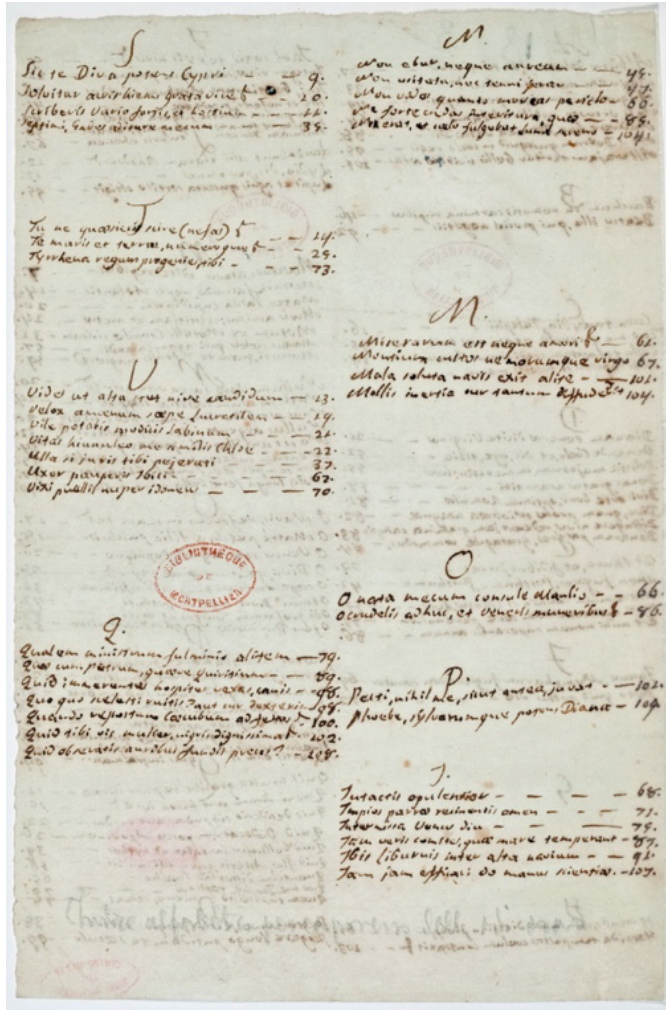 S
Sic te Diva potens Cypri — — 9.
Solvitur acris hiems grata vice — — 10.
Scriberis Vario fortis, et hostium — 11.
Septimi, Gades aditure mecum — 35.
T
Tu ne quæsieris scire (nefas)
Te maris et terræ, numeroque — — 25.
Tyrrhena regum progenies, tibi — — 73.
U
Vides ut alta stet nive candidum — 13.
Velox amœnum sæpe Lucretilem — 19.
Vile potabis modicis Sabinum — 21.
Vitas hinnuleo me similis Chloe — 22.
Ulla si juris tibi pejerati — 37.
Uxor pauperis Ibici — — 67.
Vixi puellis nuper idoneus — — 70.
BIBLIOTHÈQUE DE MONTPELLIER
Q.
Qualem ministrum fulminis alitem — 79.
Quo me cunque
Quid immerentes hospites vexas, canis — 98.
Quo quo scelesti ruitis? aut cur dexteris 98.
Quando repostum Cæcubum ad — 100.
Quid tibi vis mulier, nigris dignissima — 102.
Quid obseratis auribus fundis preces? — 108.
N.
Non ebur, neque aureum —
Non usitata, nec tenui ferar —
Non vides quanto moveas periclo — 66.
Ne forte credas interitura, quæ — — 88.
Nox erat, et cælo fulgebat Luna sereno — 104.
M.
Miserarum est neque amori — 61.
Montium custos nemorumque virgo 67.
Mala soluta navis exit alite — 101.
Mollis inertia cur tantam diffuderit 104.
O
O nata mecum consule Manlio — — 66.
O crudelis adhuc, et Veneris muneribus — 86.
P.
Petti, nihil me, sicut antea, juvat — 102.
Phoebe, sylvarumque potens Diana — 109.
I.
Intactis opulentior — — — 68.
Impios parræ recinentis omen — — 71.
Intermissa Venus diu — — — 75.
Jam veris comites, quæ mare temperant — 87.
Ibis Liburnis inter alta navium — — 91.
Jam jam efficaci do manus scientiæ. — 107.